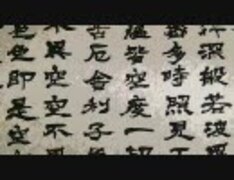 深般若波羅
多時照見五
蘊皆空度一
苦厄舍利子
異空空不
色即是空